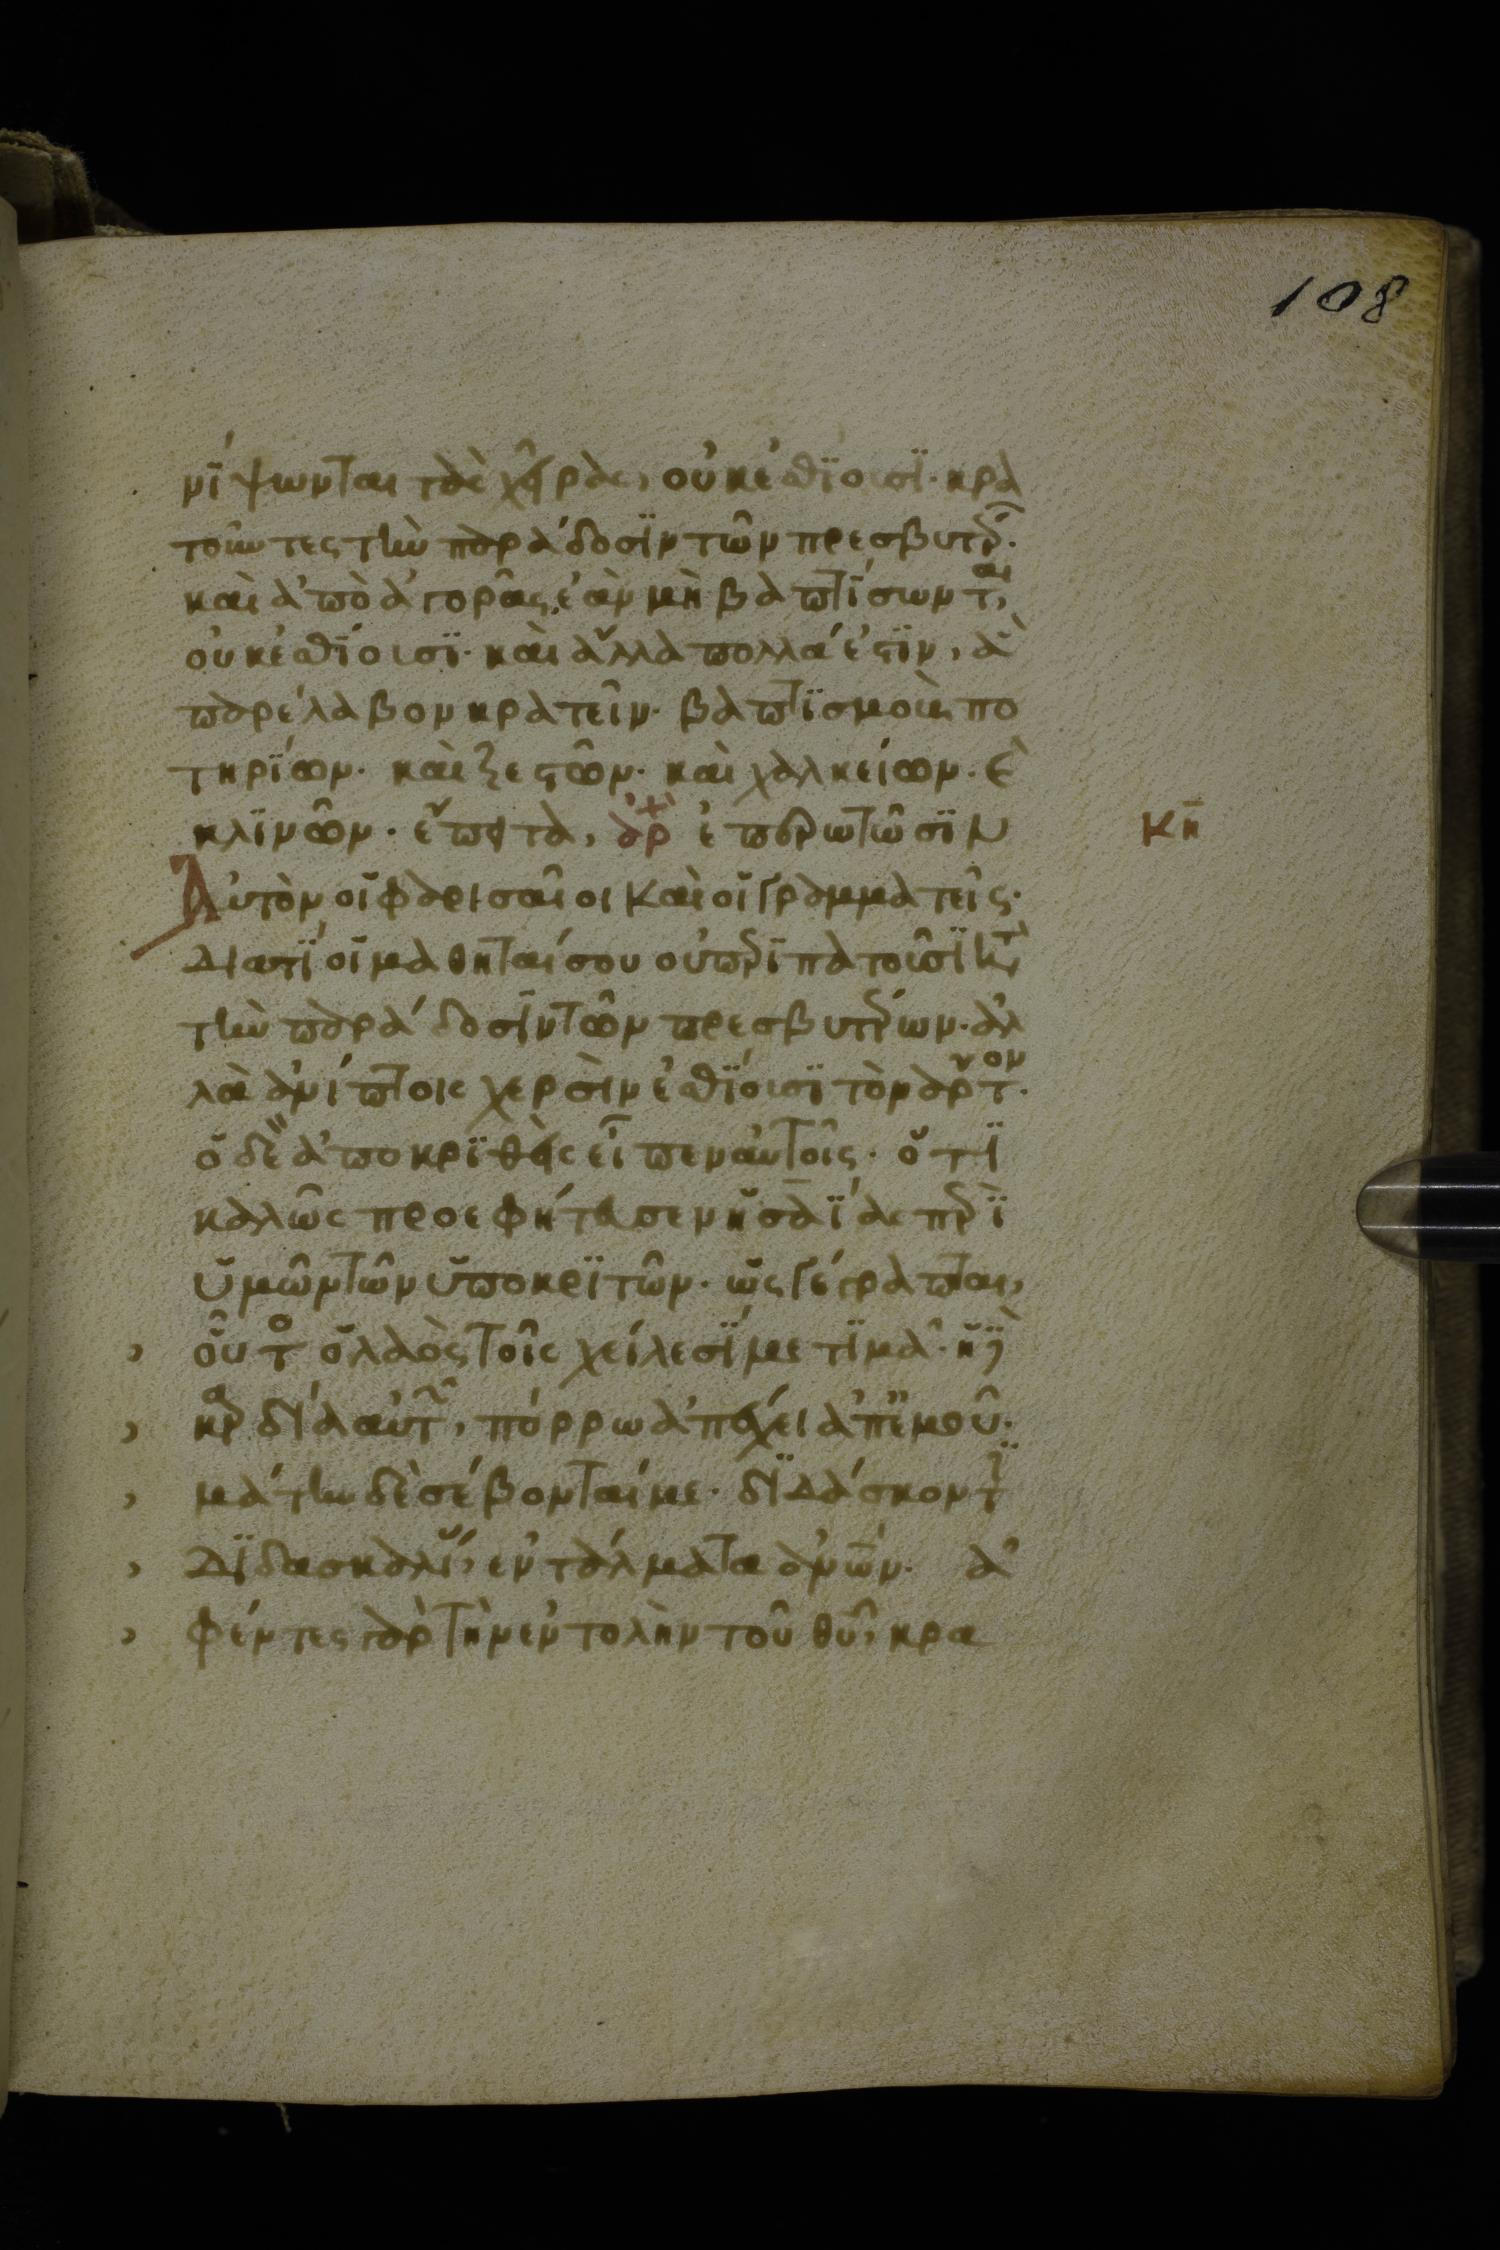 108
νίψωνται τὰς χεῖρας, οὐκ ἐσθΐουσϊ· κρα
τοῦντες τὴν παράδοσϊν τῶν πρεσβυτέρ·
καὶ ἀπὸ ἀγορᾶς, ἐὰν μὴ βαπτΐσωνται,
οὐκ ἐσθΐουσϊ· καὶ ἄλλα πολλά ἐστϊν, ἃ
παρέλαβον κρατεῖν· βαπτϊσμοὺς πο
τηρΐων· καὶ ξεστῶν· καὶ χαλκείων· ὲ
κλϊνῶν· ἔπειτα, ἀρχ ἐπερωτῶσϊν
κη
Αὐτὸν οἱ φαρισαῖοι καὶ οἱ γραμματεῖς·
Διατΐ οἱ μαθηταί σου οὐ περϊπατοῦσϊ κτ
τὴν παράδοσϊν τῶν πρεσβυτέρων· ἀλ
λὰ ἀνίπτοις χερσὶν ἐσθΐουσϊ τὸν ἄρτον·
ὁ δὲ ἀποκρϊθεὶς εἶπεν αὐτοῖς· ὅτϊ
καλῶς προεφήτευσεν ἠσαΐας περὶ
ὑμῶν τῶν ὑποκρϊτῶν· ὡς γέγραπται,
οὗτ ὁ λαὸς τοῖς χείλεσΐ με τϊμᾶ· ἡ ὲ
καρδΐα αὐτ, πόρρω ἀπέχει ἀπ' ἐμοῦ·
μάτην δὲ σέβονταί με· δϊδάσκοντ
Δϊδασκαλΐ, ἐντάλματα ἀνων· ἀ
φέντες γὰρ τὴν ἐντολὴν τοῦ θυ, κρα